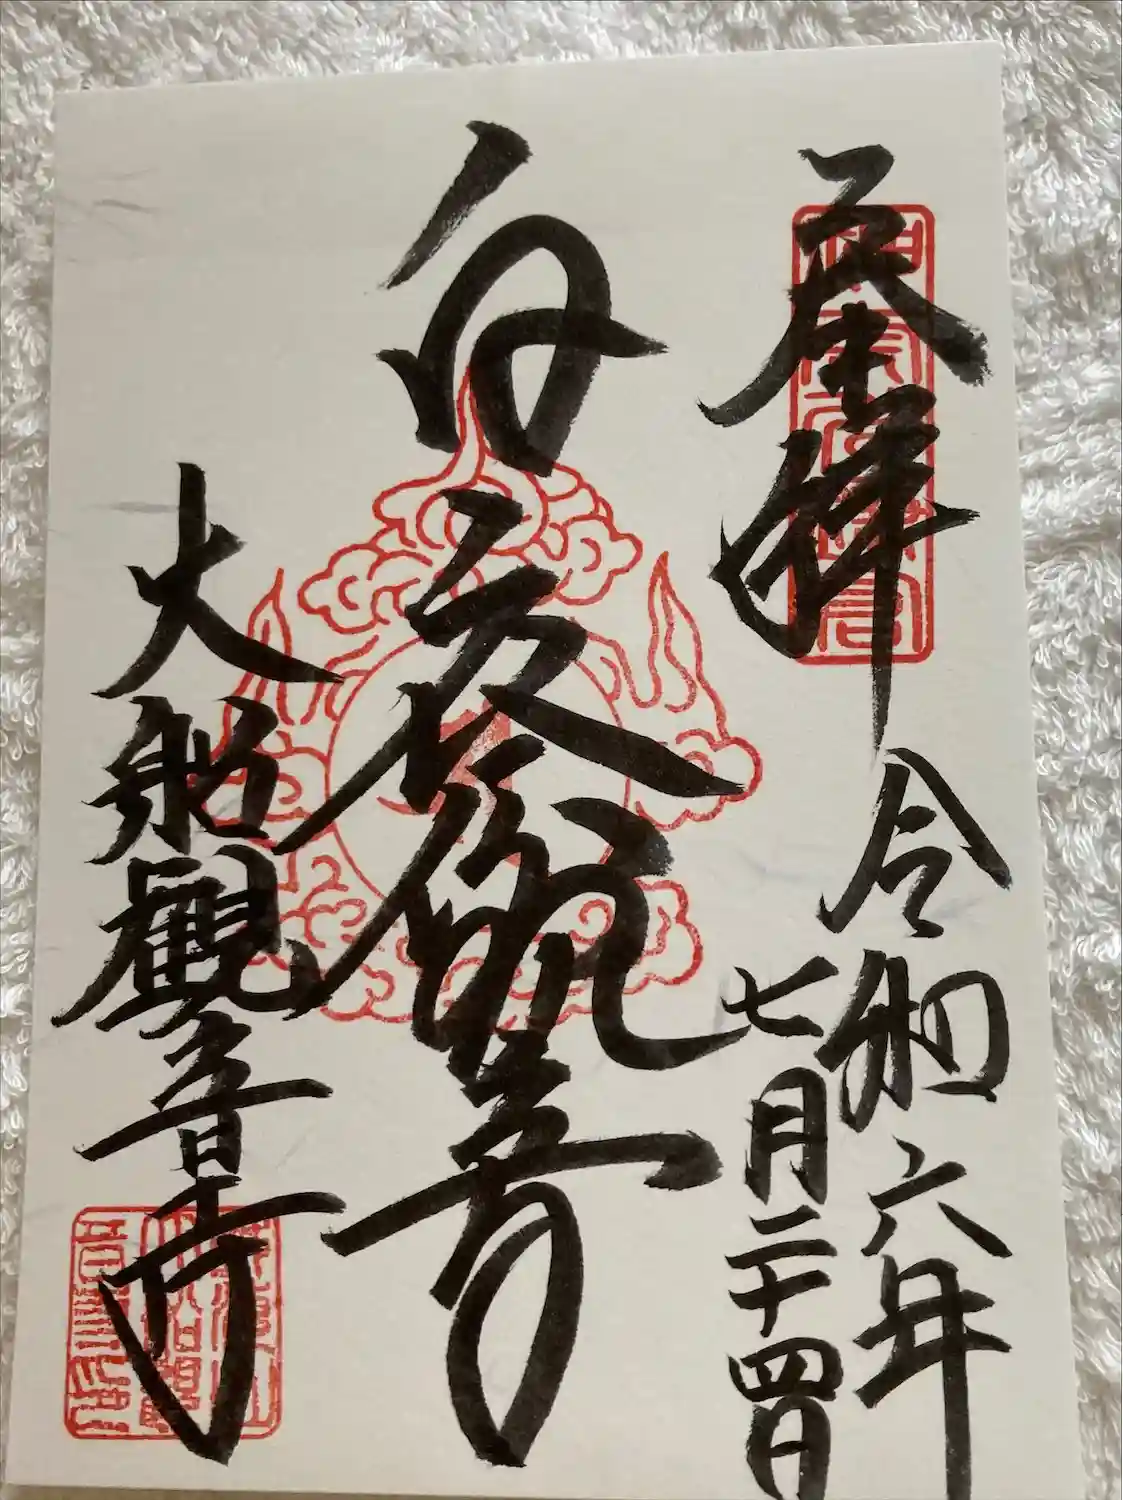 奉拝
令和六年
七月二十四日
白衣観音
大船観音寺